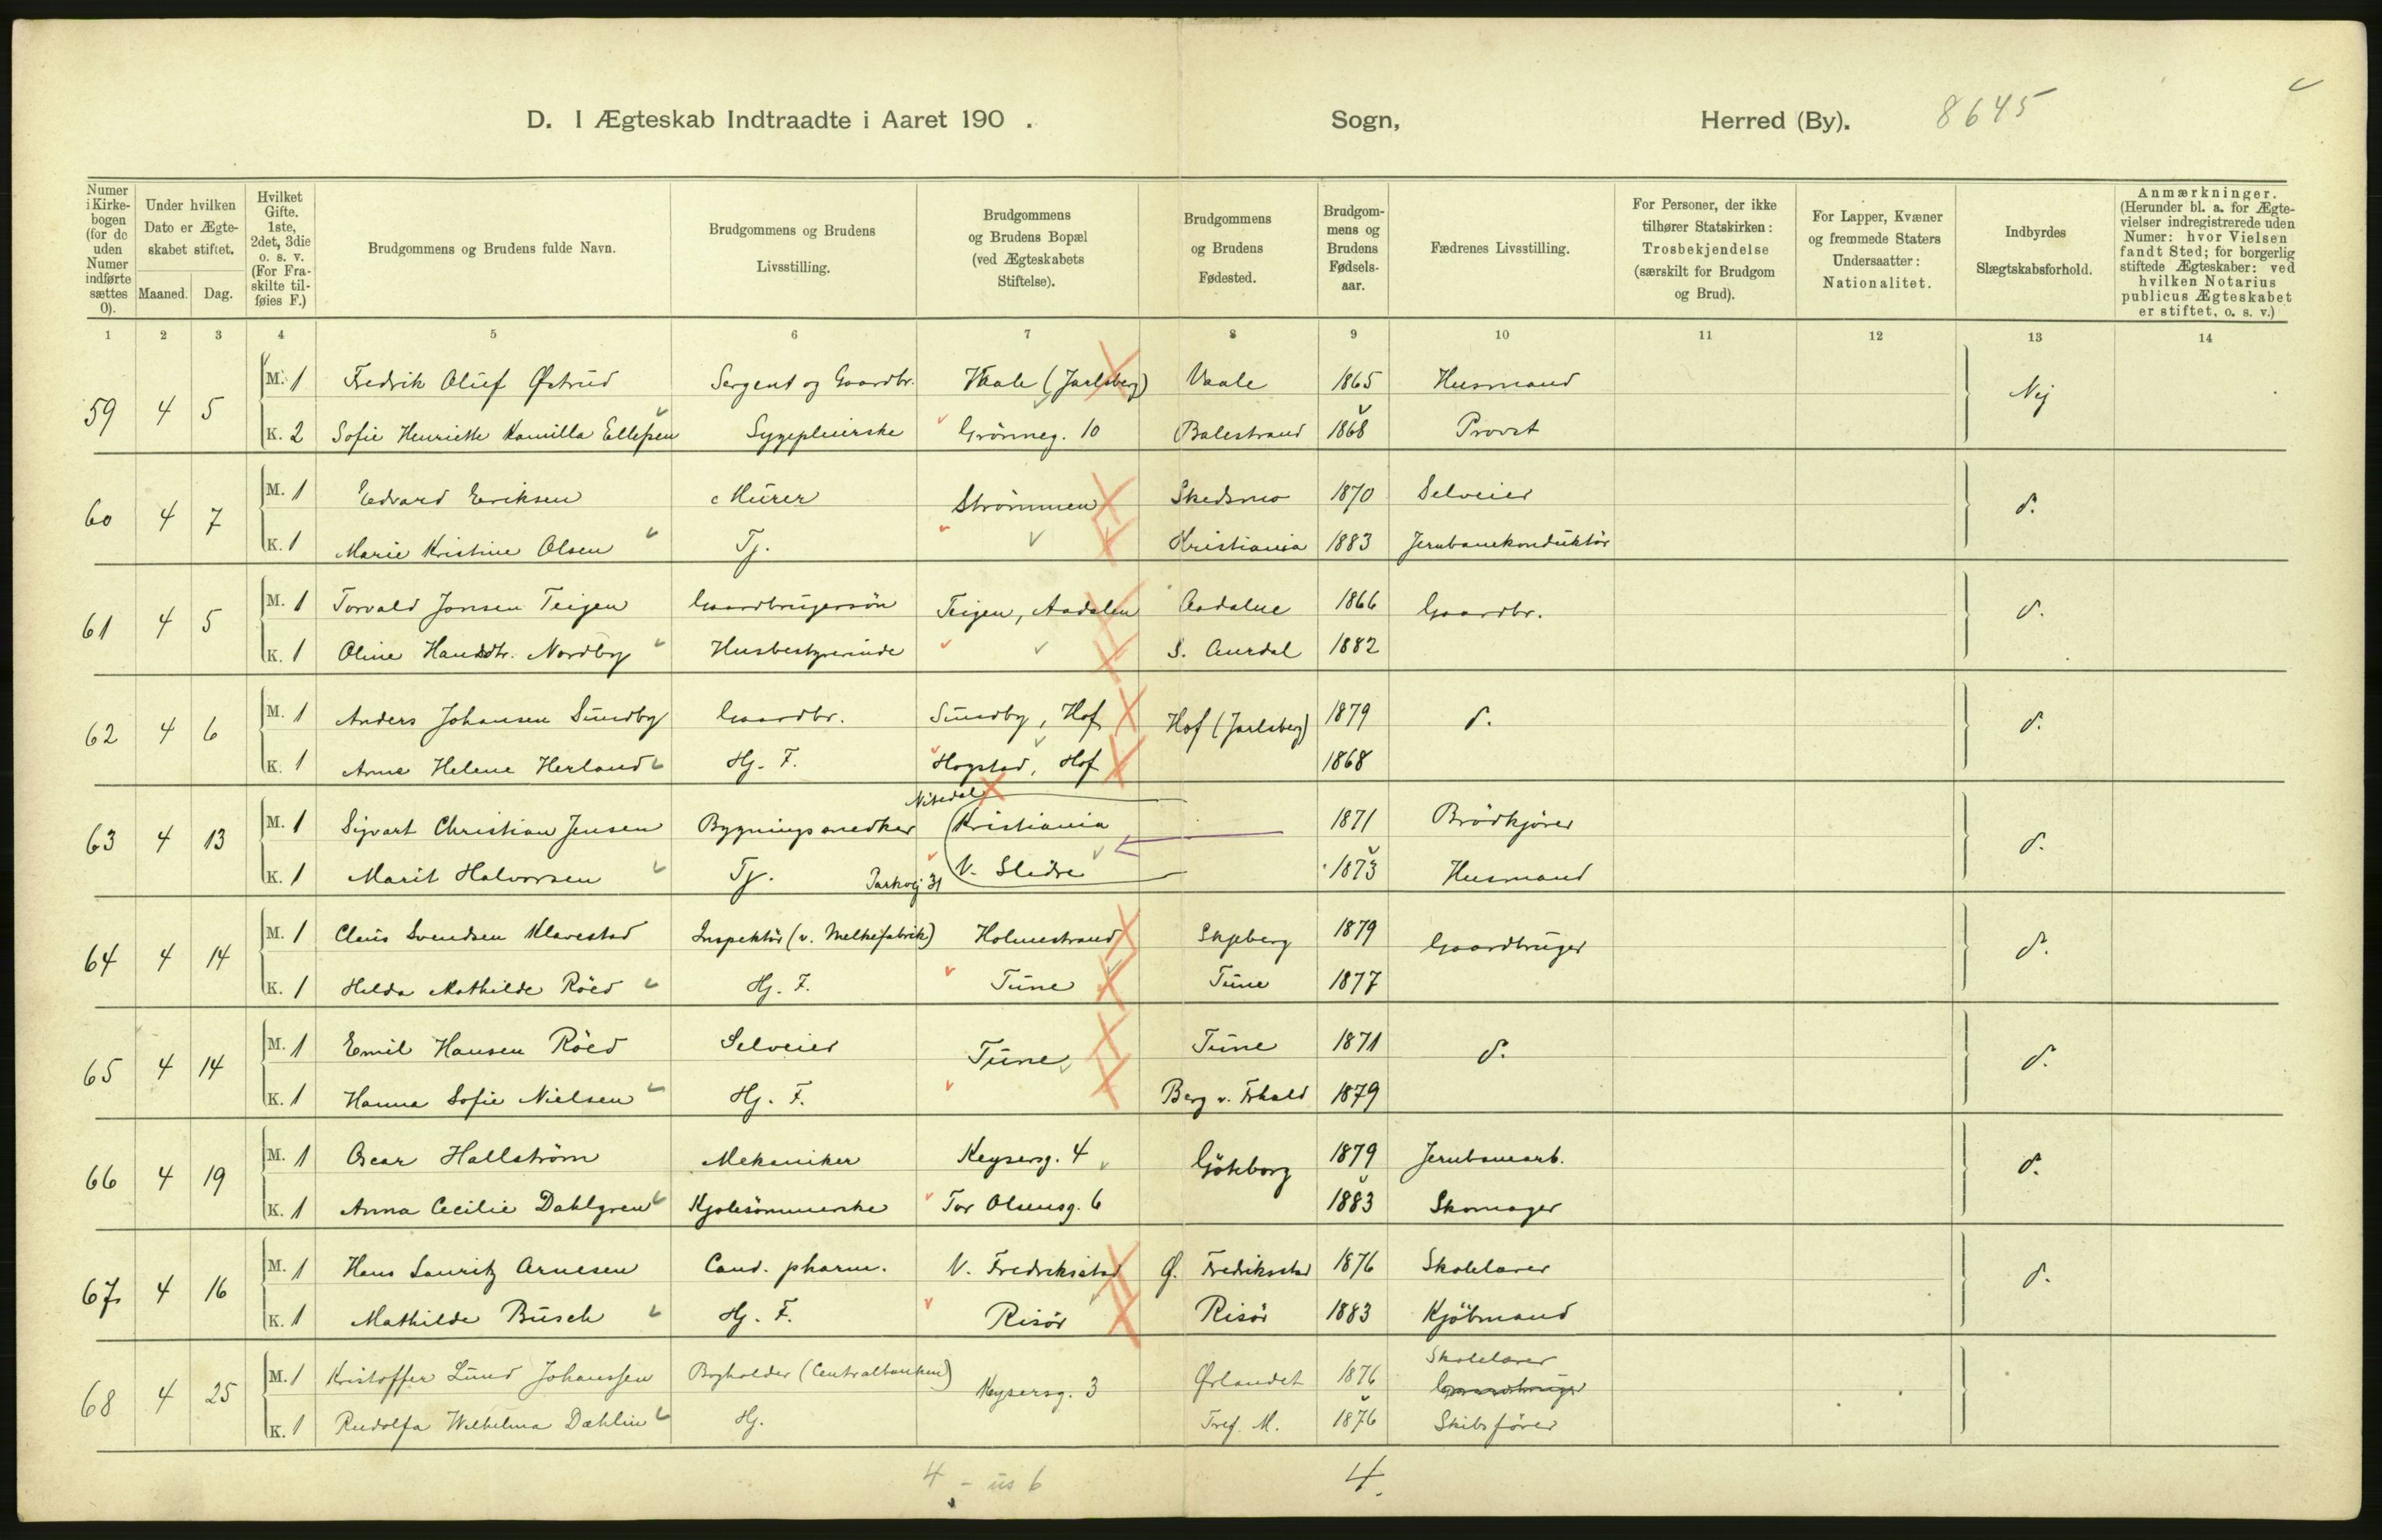 8645
D. I Ægteskab Indtraadte i Aaret 190 . Sogn, Herred (By).
Numer i Kirke-bogen (for de uden Numer indførte sættes 0).
Under hvilken Dato er Ægte-skabet stiftet.
Maaned. Dag.
Hvilket Gifte. 1ste, 2det, 3die o. s. v. (For Fra-skilte til-føies F.)
Brudgommens og Brudens fulde Navn.
Brudgommens og Brudens Livsstilling.
Brudgommens og Brudens Bopæl (ved Ægteskabets Stiftelse).
Brudgommens og Brudens Fødested.
Brudgom-mens og Brudens Fødsels-aar.
Fædrenes Livsstilling.
For Personer, der ikke tilhører Statskirken: Trosbekjendelse (særskilt for Brudgom og Brud).
For Lapper, Kvæner og fremmede Staters Undersaatter: Nationalitet.
Indbyrdes Slægtskabsforhold.
Anmærkninger. (Herunder bl. a. for Ægte-vielser indregistrerede uden Numer: hvor Vielsen fandt Sted; for borgerlig stiftede Ægteskaber: ved hvilken Notarius publicus Ægteskabet er stiftet, o. s. v.)
1 2 3 4 5 6 7 8 9 10 11 12 13 14
59 4 5 M. 1 Fredrik Oluf Østrud Sergent og Gaardbr. Vaale (Jarlsberg) Vaale 1865 Husmand Nej
K. 2 Sofie Henriette Kamilla Ellefsen Sygepleierske Grönneg. 10 Balestrand 1868 Provst
60 4 7 M. 1 Edvard Eriksen Murer Strömmen Skedsmo 1870 Selveier d.
K. 1 Marie Kristine Olsen Tj. Kristiania 1883 Jernbanekonduktör
61 4 5 M. 1 Torvald Jonsen Teigen Gaardbrugersön Teigen, Aadalen Aadalne 1866 Gaardbr. d.
K. 1 Oline Hansdtr. Nordby Husbestyrerinde S. Aurdal 1882
62 4 6 M. 1 Anders Johansen Sundby Gaardbr. Sundby, Hof Hof (Jarlsberg) 1879 d. d.
K. 1 Anne Helene Herland Hj. F. Hogstad, Hof 1868
Nitedal
63 4 13 M. 1 Sigvart Christian Jensen Bygningssnedker Kristiania 1871 Brödkjörer d.
K. 1 Marit Halvorsen Tj. Parkvej 31 V. Slidre 1873 Husmand
64 4 14 M. 1 Claus Svendsen Klavestad Inspektör (v. Melkefabrik) Holmestrand Skjeberg 1879 Gaardbruger d.
K. 1 Helda Mathilde Röed Hj. F. Tune Tune 1877
65 4 14 M. 1 Emil Hansen Röed Selveier Tune Tune 1871 d. d.
K. 1 Hanna Sofie Nielsen Hj. F. Berg v. Frhald 1879
66 4 19 M. 1 Oscar Hallström Mekaniker Keysersg. 4 Göteborg 1879 Jernbanearb. d.
K. 1 Anna Cecilie Dahlgren Kjolesömmerske Tor Olsensg. 6 1883 Skomager
67 4 16 M. 1 Hans Lauritz Arnesen Cand. pharm. V. Fredriksstad Ø. Fredriksstad 1876 Skolelærer d.
K. 1 Mathilde Busch Hj. F. Risör Risör 1883 Kjöbmand
68 4 25 M. 1 Kristoffer Lund Johanssen Bogholder (Centralbanken) Keysersg. 3 Ørlandet 1876 Skolelærer Gaardbruger
K. 1 Rudolfa Wilhelma Dæhlin Hj. 1876 Skibsförer
4 6 4.